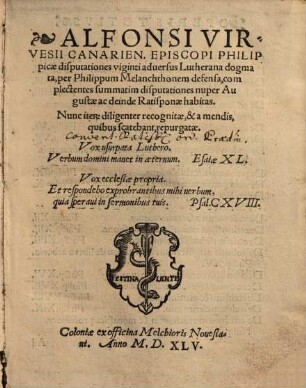 ALFONSI VIR
VESII CANARIEN. EPISCOPI PHILIP
picæ disputationes viginti aduersus Lutherana dogma
ta, per Philippum Melanchthonem defensa, com
plectentes summatim disputationes nuper Au
gustæ ac deinde Ratisponæ habitas.
Nunc iterū diligenter recognitæ, & a mendis,
quibus scatebant, repurgatæ.
Convent. Ratisp. ord. Prædic.
Vox usurpata Luthero.
Verbum domini manet in æternum. Esaiæ XL.
Vox ecclesiæ propria.
Et respondebo exprobrantibus mihi uerbum,
quia speraui in sermonibus tuis. Psal. CXVIII.
FESTINA LENTE
Coloniæ ex officina Melchioris Nouesia
ni. Anno M. D. XLV.